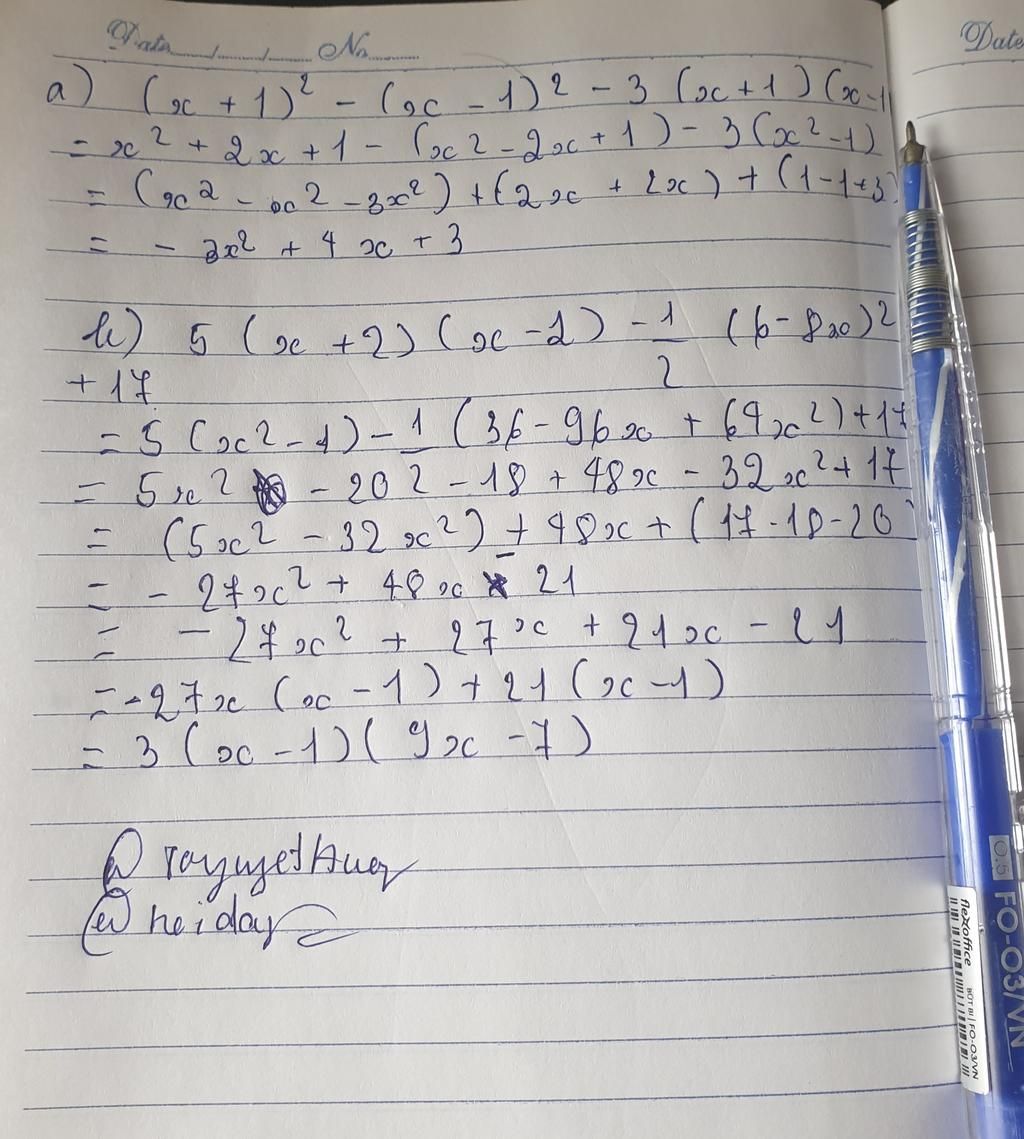 Date ___/___/___ No ___
Date
a) (x + 1)² - (x - 1)² - 3 (x + 1) (x - 1
= x² + 2x + 1 - (x² - 2x + 1) - 3 (x² - 1)
= (x² - x² - 3x²) + (2x + 2x) + (1 - 1 + 3)
= - 3x² + 4x + 3
b) 5 (x + 2) (x - 2) - 1/2 (6 - 8x)²
+ 17
= 5 (x² - 4) - 1 (36 - 96x + 64x²) + 17
= 5x² - 20 - 18 + 48x - 32x² + 17
= (5x² - 32x²) + 48x + (17 - 18 - 20
= - 27x² + 48x - 21
= - 27x² + 27x + 21x - 21
= - 27x (x - 1) + 21 (x - 1)
= 3 (x - 1) ( 9x - 7)
@ heiday
0.5 FO-03/VN
flexoffice BÚT BI | FO-03/VN